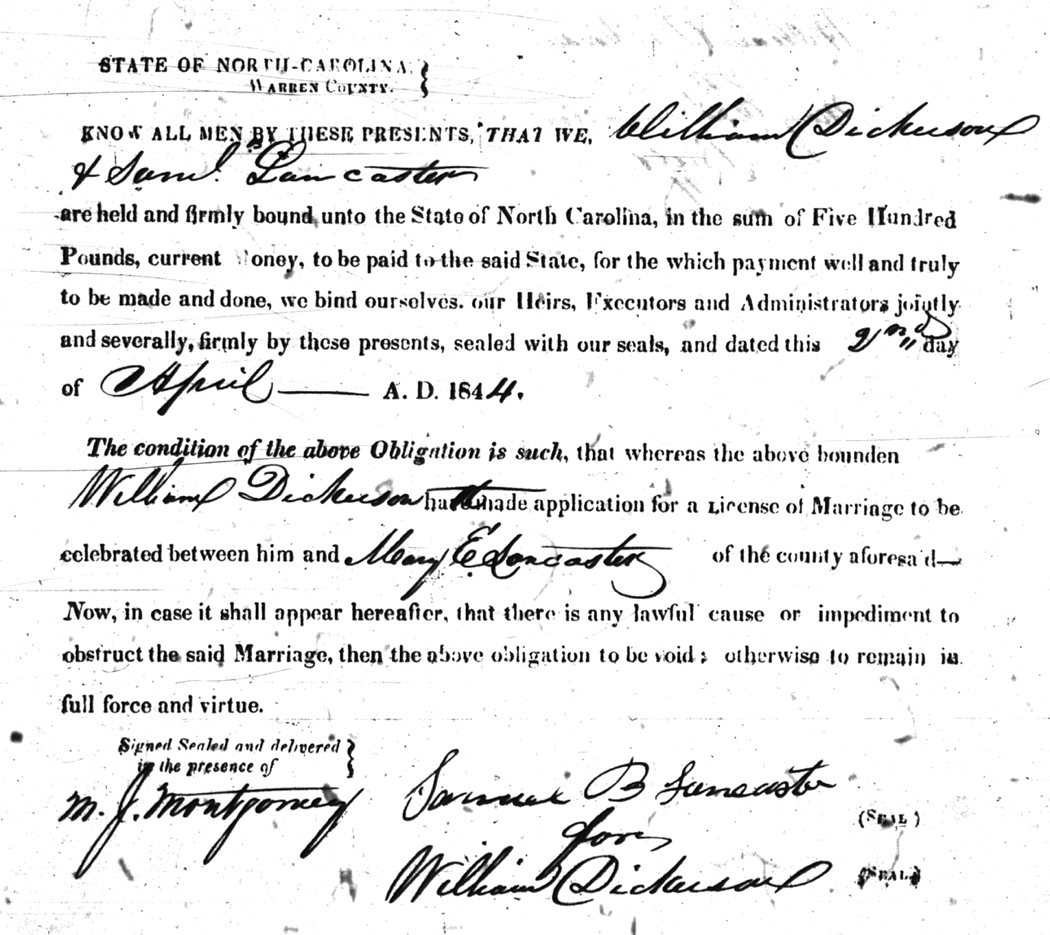 STATE OF NORTH-CAROLINA,
WARREN COUNTY.
KNOW ALL MEN BY THESE PRESENTS, THAT WE, William Dickerson
& Saml. B Lancaster
are held and firmly bound unto the State of North Carolina, in the sum of Five Hundred
Pounds, current Money, to be paid to the said State, for the which payment well and truly
to be made and done, we bind ourselves. our Heirs, Executors and Administrators jointly
and severally, firmly by these presents, sealed with our seals, and dated this 2nd day
of April A. D. 1844.
The condition of the above Obligation is such, that whereas the above bounden
William Dickerson hath made application for a License of Marriage to be
celebrated between him and Mary E Lancaster of the county aforesa'd
Now, in case it shall appear hereafter, that there is any lawful cause or impediment to
obstruct the said Marriage, then the above obligation to be void; otherwise to remain in
full force and virtue.
Signed Sealed and delivered
in the presence of
M. J. Montgomery
Samuel B Lancaster
(SEAL)
for
William Dickerson (SEAL)